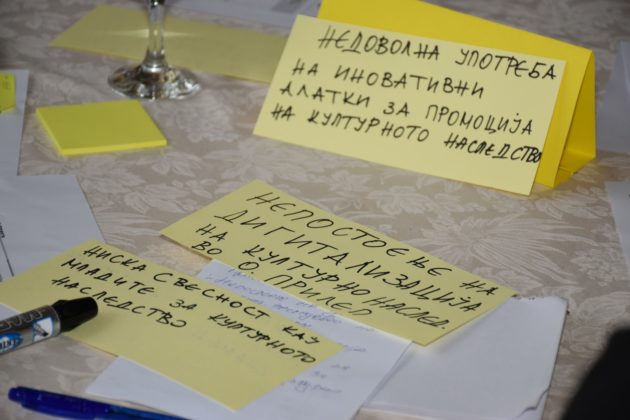 НЕДОВОЛНА УПОТРЕБА
НА ИНОВАТИВНИ
АЛАТКИ ЗА ПРОМОЦИЈА
НА КУЛТУРНОТО НАСЛЕДСТВО
НЕПОСТОЕЊЕ НА
ДИГИТАЛИЗАЦИЈА
НА КУЛТУРНО НАСЛЕД.
ВО. ПРИЛЕП
НИСКА СВЕСНОСТ КАЈ
МЛАДИТЕ ЗА КУЛТУРНОТО
НАСЛЕДСТВО